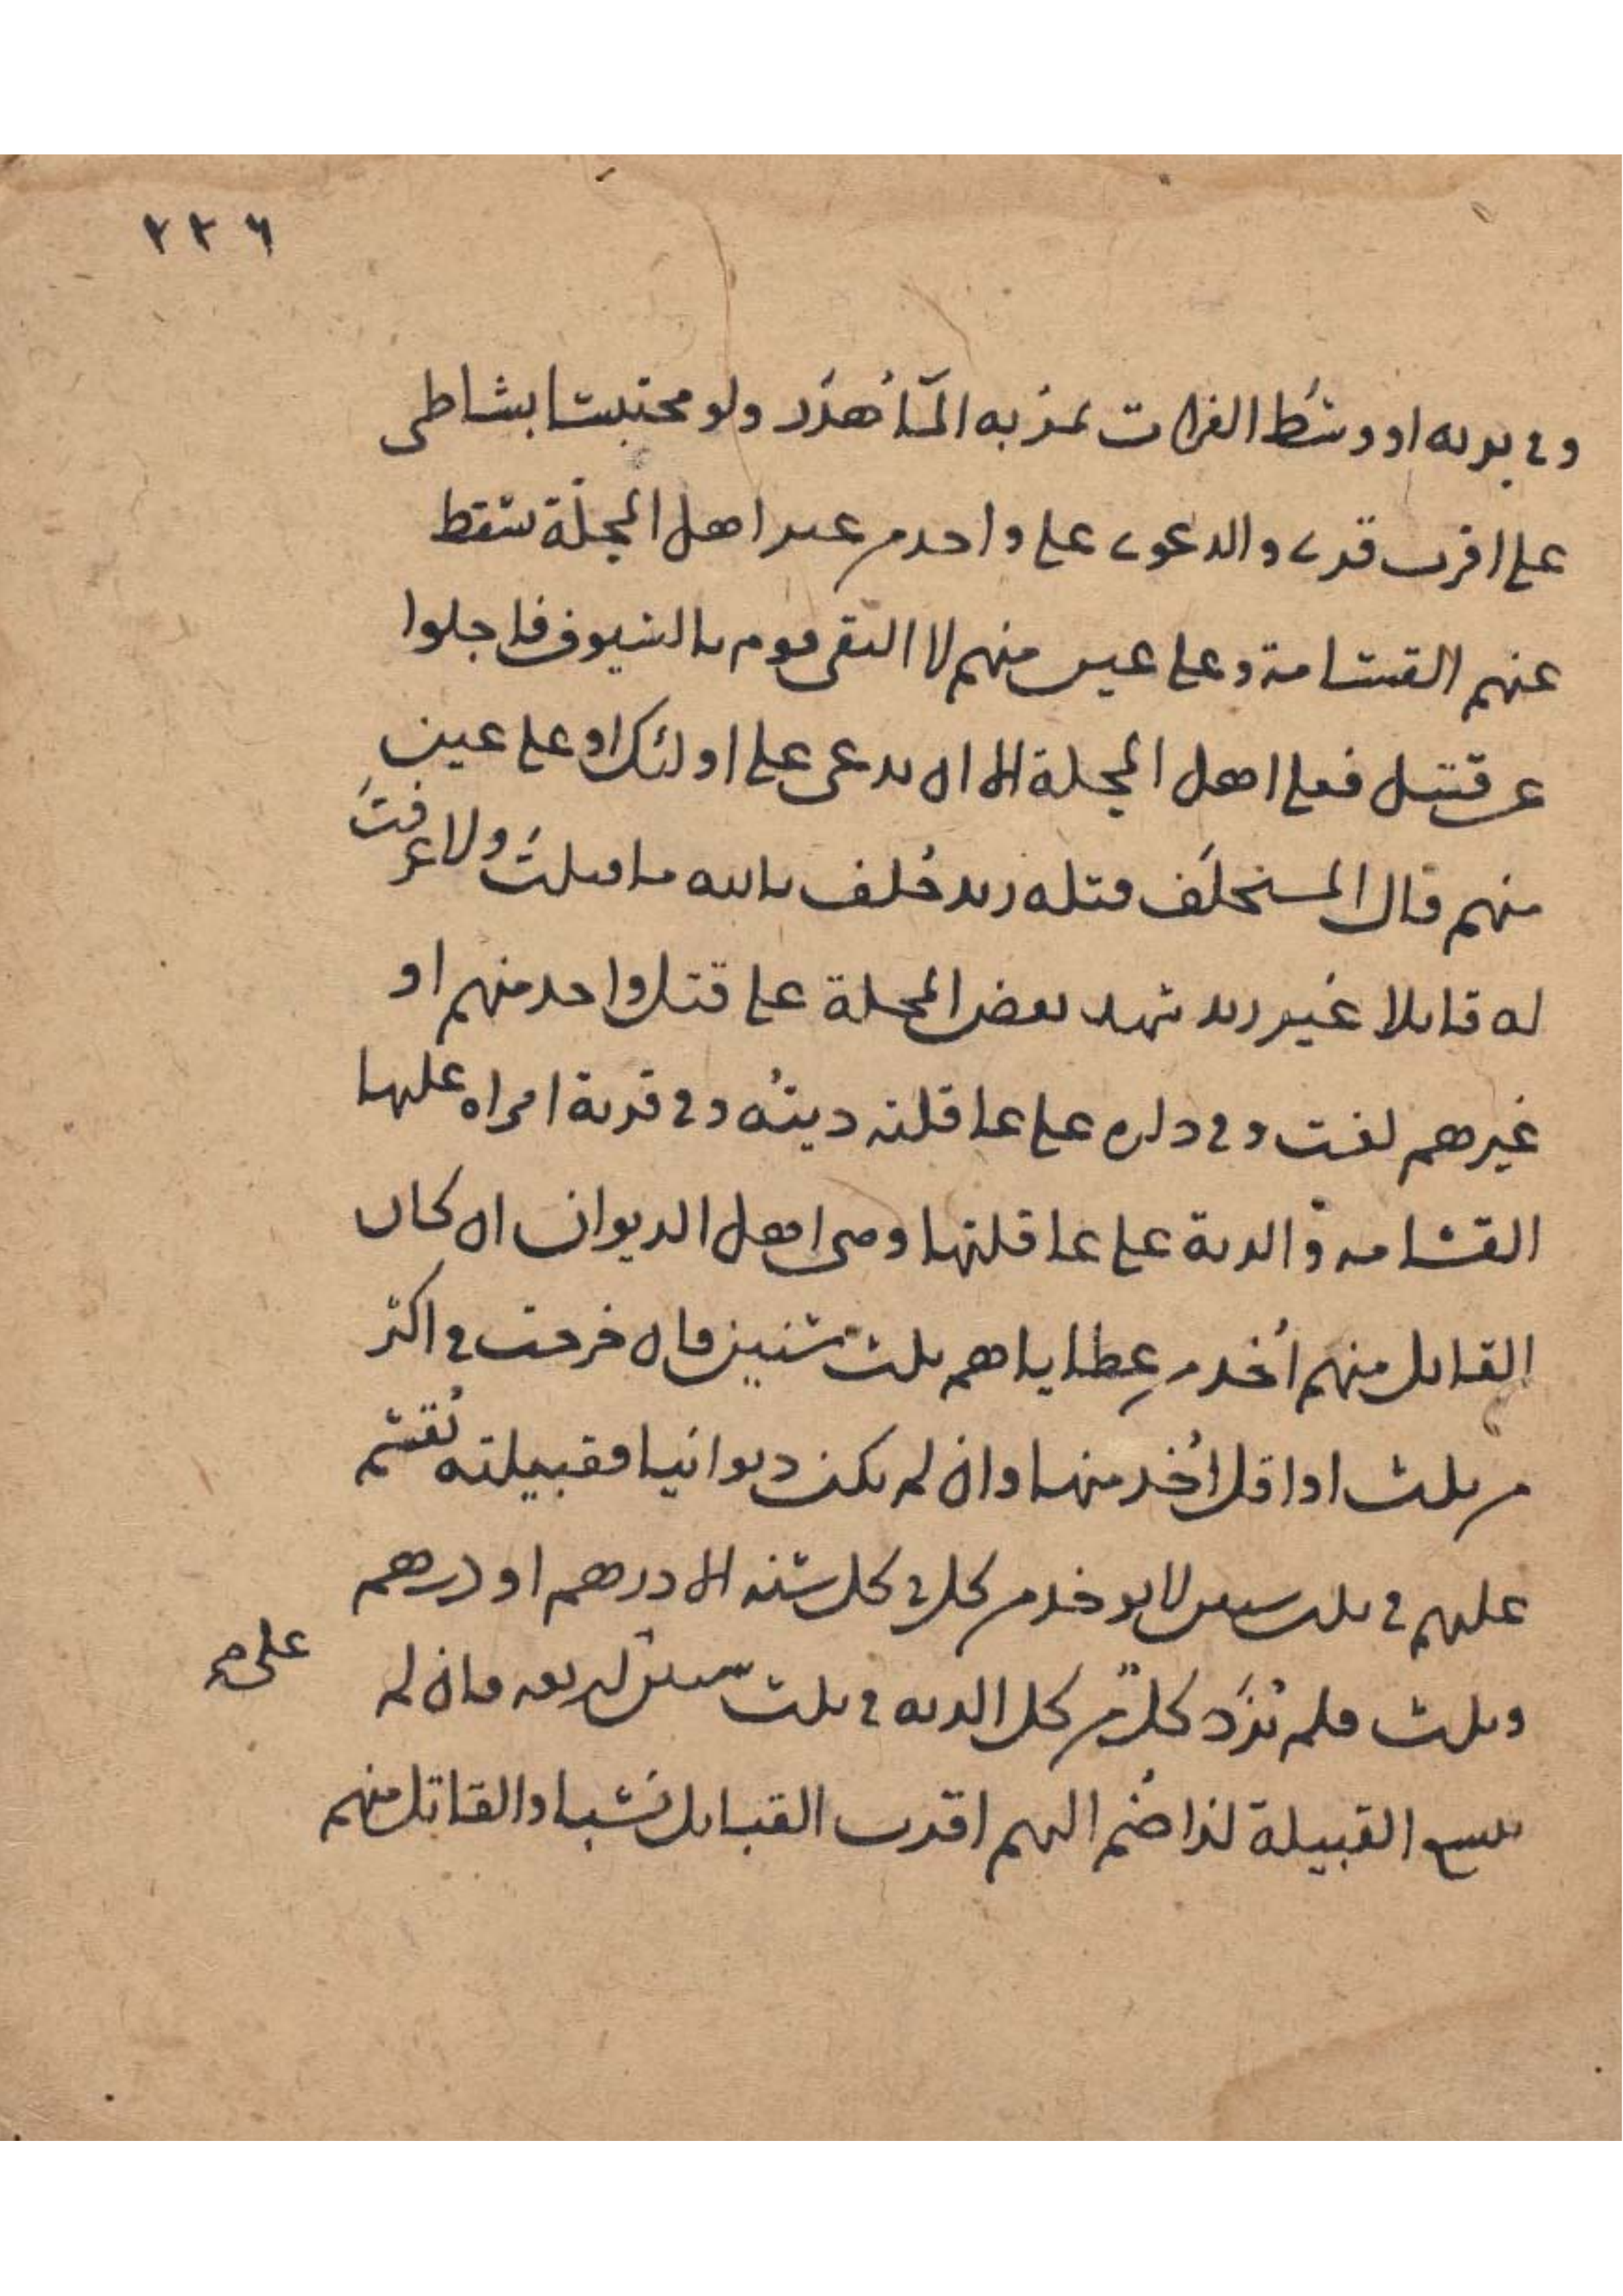 ٢٢٦
وفي برية او وسَط الفرات يمرّ به المآ هُدَر ولو محتبسا بشاطى
على اقرب قرى والدعوى على واحد من غير اهل المحلّة تسقط
عنهم القسامة وعلى عين منهم لا التقى قوم بالسيوف فاجلوا
عن قتيل فعلى اهل المحلة الا ان يدعى على اولئك او على عين
منهم قال المستحلَف قتله زيد حُلف بالله ما قتلتُ ولا عرفتُ
له قاتلا غير زيد شهد بعض المحلة على قتل واحد منهم او
غيرهم لغت وفي داره على عاقلته ديتُه وفي قرية امراه عليها
القسامه والدية على عاقلتها وهي اهل الديوان ان كان
القاتل منهم اُخذ من عطاياهم ثلث سنين فان خرجت في اكثر
من ثلث او اقل اُخذ منها وان لم يكن ديوانيا فقبيلته تُقسَم
عليهم في ثلث سنين لا يوخذ من كل في كل سنه الا درهم او درهم
وثلث فلم تُزَد كل من كل الديه في ثلث سنين اربعه فان لم
تتسع القبيلة لذا ضُم اليهم اقرب القبايل نسَبا والقاتل منهم